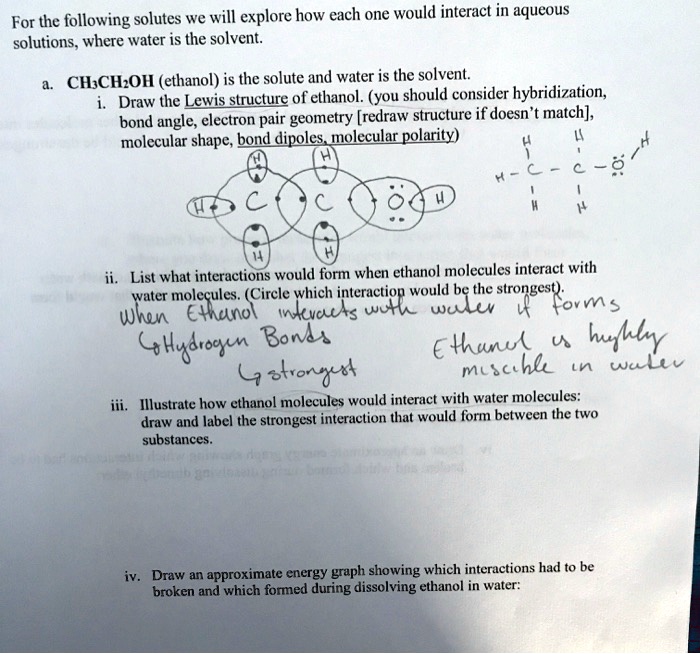 For the following solutes we will explore how each one would interact in aqueous
solutions, where water is the solvent.
a. CH3CH2OH (ethanol) is the solute and water is the solvent.
i. Draw the Lewis structure of ethanol. (you should consider hybridization,
bond angle, electron pair geometry [redraw structure if doesn't match],
molecular shape, bond dipoles, molecular polarity)
H H H H H
H - C - C - O
H H
H C C O H
H H
ii. List what interactions would form when ethanol molecules interact with
water molecules. (Circle which interaction would be the strongest).
When Ethanol interacts with water it forms
↳Hydrogen Bonds
↳ strongest
Ethanol is highly
miscible in water
iii. Illustrate how ethanol molecules would interact with water molecules:
draw and label the strongest interaction that would form between the two
substances.
iv. Draw an approximate energy graph showing which interactions had to be
broken and which formed during dissolving ethanol in water: